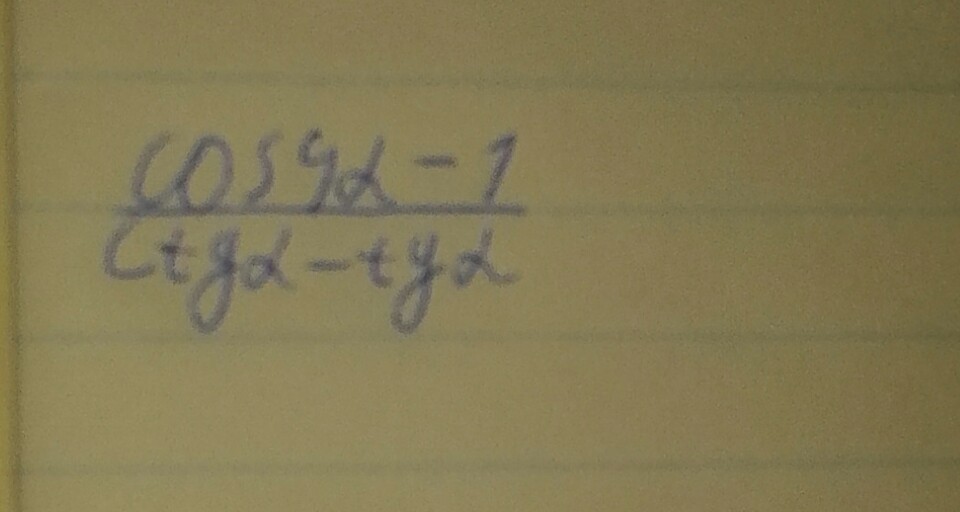 cos4α - 1
ctgα - tgα